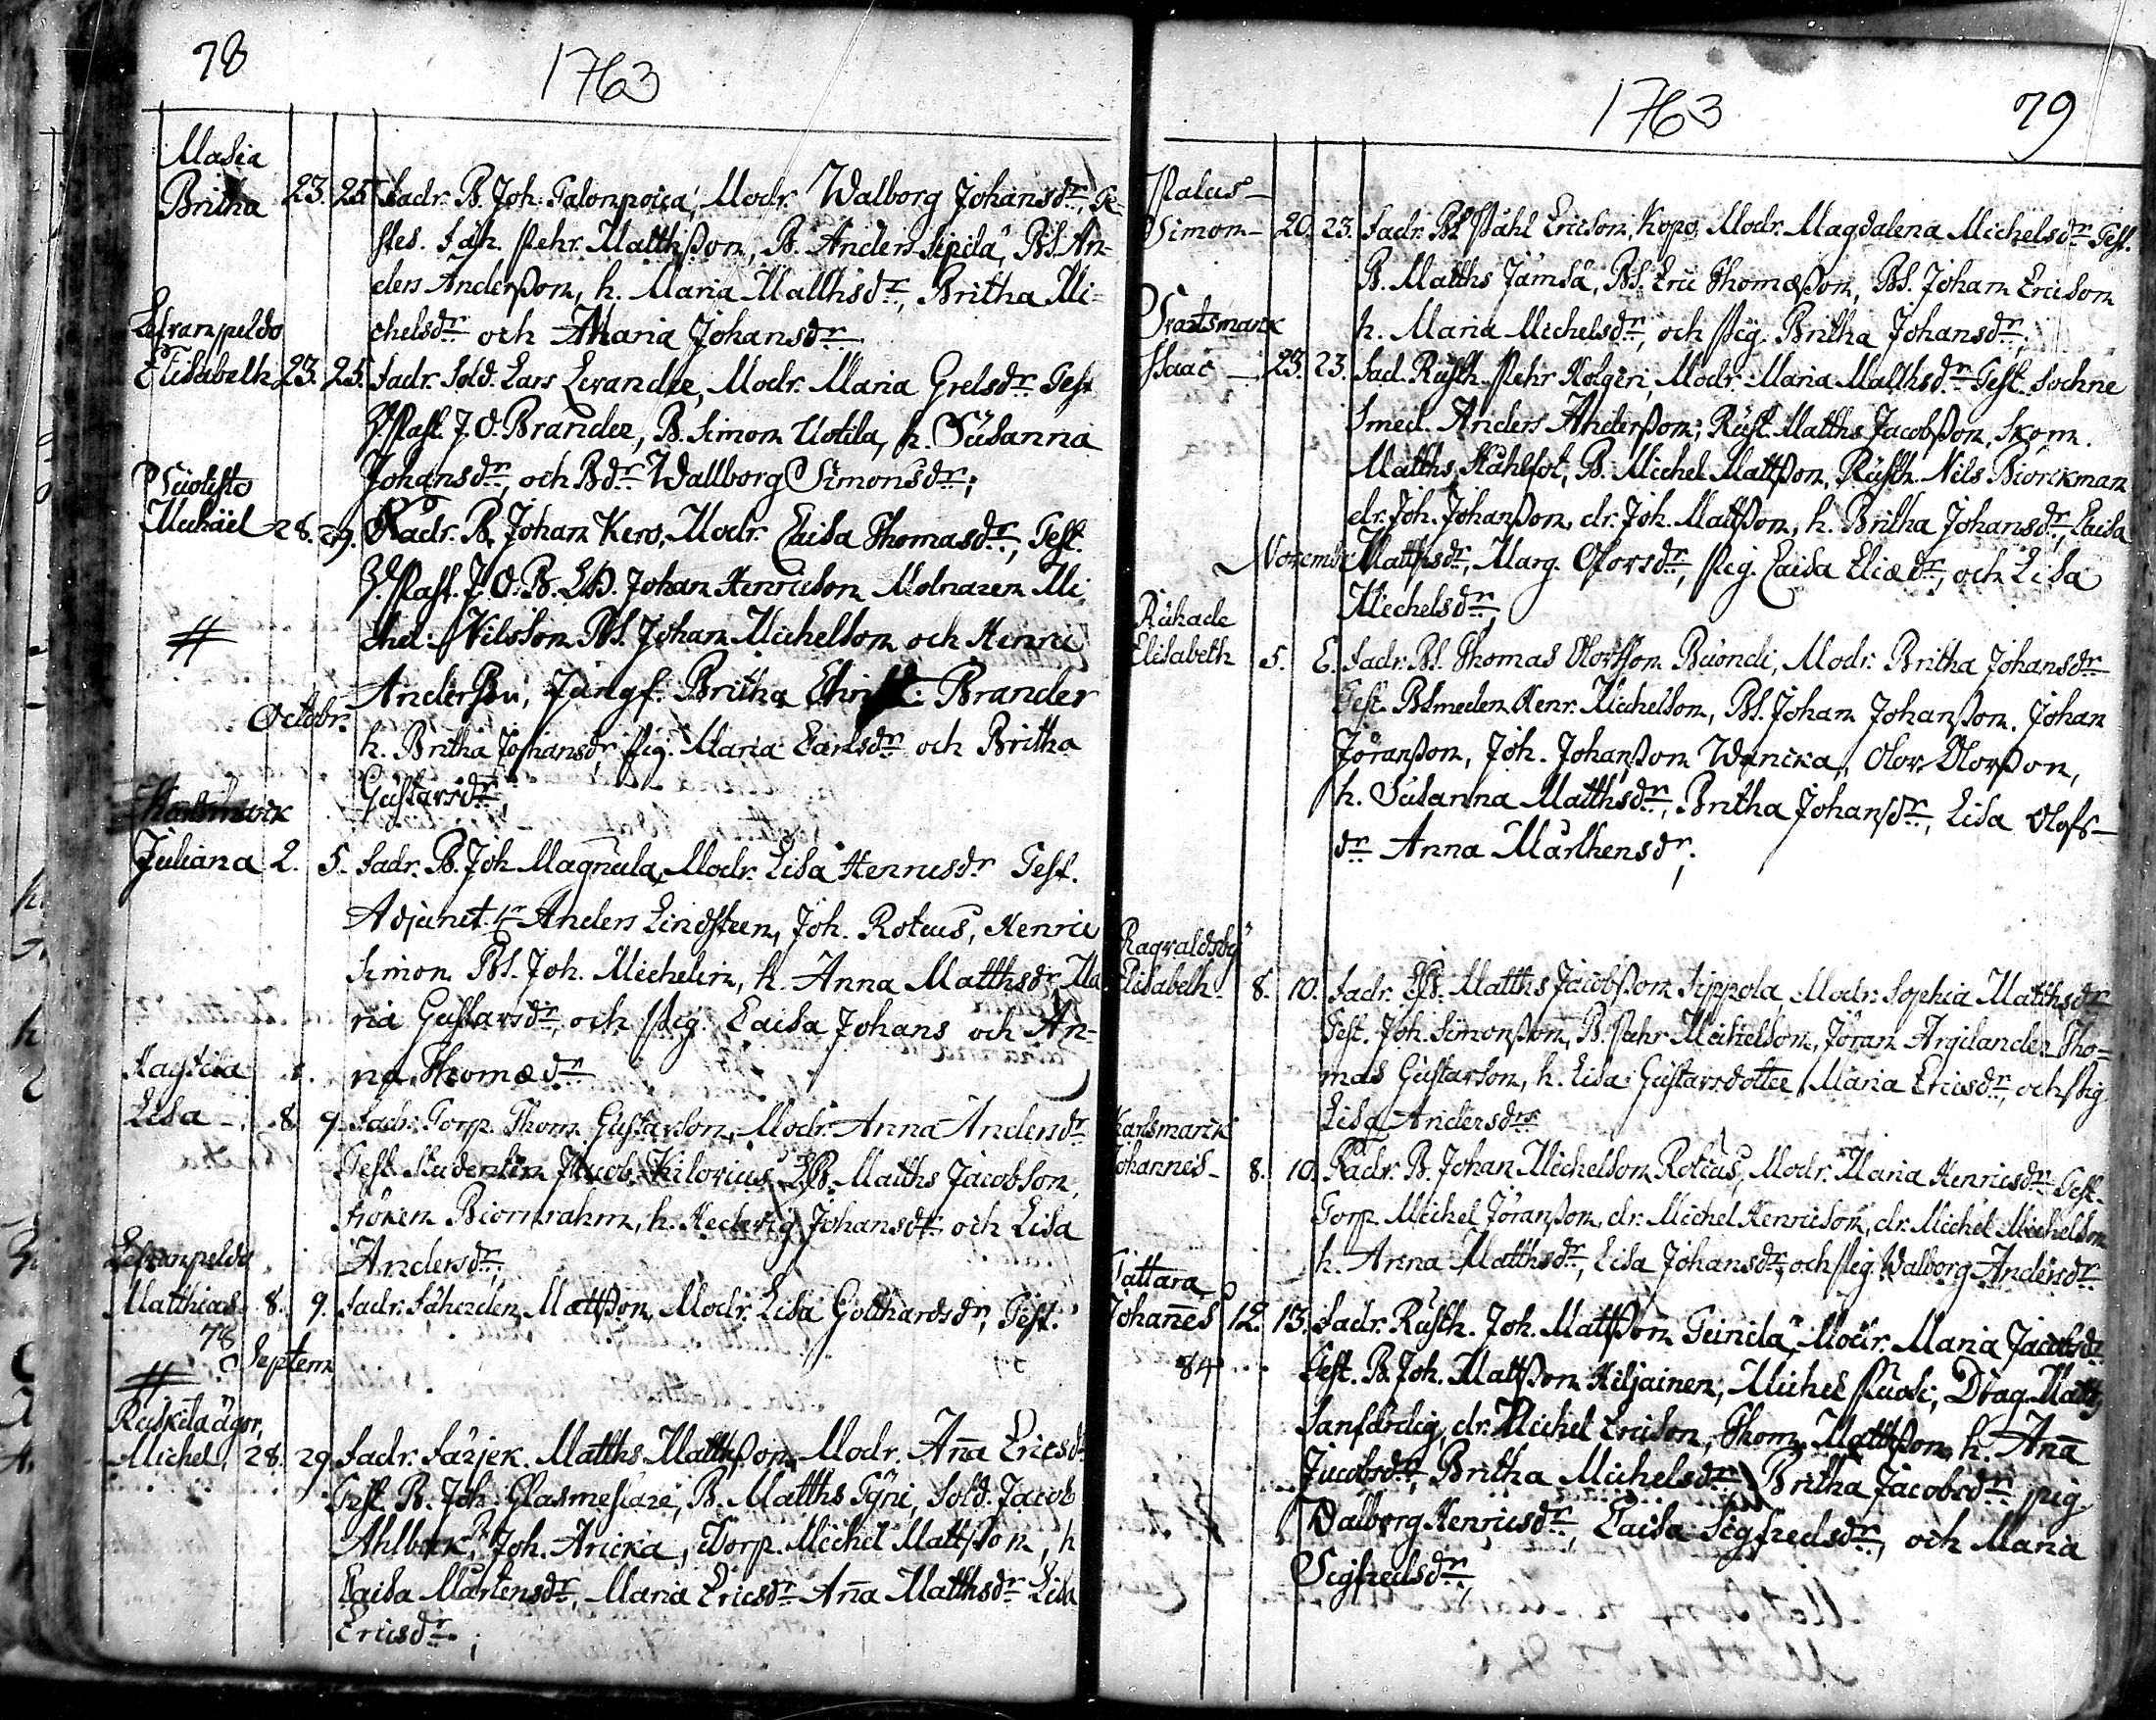 78
1763
Masia
Britha 23. 25. Fadr. B. Joh. Talonpoica, Modr. Walborg Johansdr, Te-
stes. Fäh. Pehr. Matthsson, B. Anders Sipilä, BS. An-
ders Andersson, h. Maria Matthsdr, Britha Mi-
chelsdr och Maria Johansdr
Lefranpeldo
Elisabeth 23. 25. Fadr. Sold. Lars Levander, Modr. Maria Grelsdr Test
J. O. Brander, B. Simon Uotila, h. Susanna
Johansdr, och Bdr Wallborg Simonsdr;
Michäel 28. 29. Fadr. B. Johan Kero, Modr. Caisa Thomasdr, Test.
J. O. B. Johan Henricson Molnaren Mi
chel Nilsson BS. Johan Michelson och Henric
Andersson, Jungf. Britha Christ. Brander
Octobr.
h. Britha Johansdr, pig. Maria Carlsdr och Britha
Gustavsdr,
Juliana 2. 5. Fadr. B. Joh Magnula, Modr. Lisa Henricsdr Test.
Adjunct. Hr Anders Lindsteen, Joh. Roteus, Henric
Simon BS. Joh. Michelin, h. Anna Matthsdr, Ma
ria Gustavsdr, och Pig. Caisa Johans och An-
na Thomædr
Lisa 8 9. Fadr. Torp. Thom. Gustavson, Modr. Anna Andersdr
Test. Studenten Jacob Kilovius Matths Jacobson,
Fröken Biornrahm, h. Hedevig Johansdr och Lisa
Andersdr,
Lefranpeldo
Matthias 8. 9. Fadr. Fäherden Mattsson, Modr. Lisa Gotthardsdr, Test.
78
Septem
Reiskila ägor,
Michel 28. 29. Fadr. Färjek. Matths Matthsson, Modr. Aña Ericsdr
Test. B. Joh. Glasmestare, B. Matths Työni, Sold. Jacob
Ahlbeck, Joh. Aricka, Torp. Michel Mattsson, h
Caisa Mårtensdr, Maria Ericsdr Aña Matthsdr Lisa
Ericsdr;
1763
79
Palus
Simon 20. 23. Fadr. BS Påhl Ericson, Kopo, Modr. Magdalena Michelsdr Test.
B. Matths Jämsä, BS. Eric Thomæsson, BS. Johan Ericson
h. Maria Michelsdr, och Pig. Britha Johansdr;
Svartsmarck
Isaac 23. 23. Fad. Rusth. Pehr Holgeri, Modr. Maria Matthsdr Test. Sochne
Smed. Anders Andersson; Rust. Matths Jacobsson, Skom.
Matths Stahlfot, B. Michel Mattsson, Rusth. Nils Biorckman
dr. Joh. Johansson, dr. Joh. Mattsson, h. Britha Johansdr, Caisa
Novembr. Matthsdr, Marg. Olovsdr, Pig. Caisa Eliædr, och Lisa
Michelsdr,
Rähade
Elisabeth 5. 6. Fadr. BS. Thomas Olovsson Buondi, Modr. Britha Johansdr
Test. BSmeden Henr. Michelson, BS. Johan Johansson. Johan
Jöransson, Joh. Johansson Wänckä, Olov Olovsson,
h. Susanna Matthsdr, Britha Johansdr, Lisa Olofs-
dr Anna Mårthensdr;
Ragvaldsby
Elisabeth 8. 10. Fadr. Matths Jacobsson Sippola Modr. Sophia Matthsdr
Test. Joh. Simonsson, B. Pehr Michelson, Jöran Argilander Tho-
mas Gustavson, h. Lisa Gustavsdotter, Maria Ericsdr, och Pig
Lisa Andersdr
Karlsmarck
Johannes 8. 10. Fadr. B. Johan Michelson Roteus, Modr. Maria Henricsdr Test.
Torp. Michel Jöransson, dr. Michel Henricson, dr. Michel Michelson
h. Anna Matthsdr, Lisa Johansdr, och Pig. Walborg Andersdr
Tattara
Johañes 12. 13. Fadr. Rusth. Joh. Mattsson Teinilä, Modr. Maria Jacobsdr
84
Test. B. Joh. Mattsson Hiljainen; Michel Puosi; Drag. Matts
Sanfärdig, dr. Michel Ericson, Thom. Matthsson, h. Aña
Jacobsdr, Britha Michelsdr, Britha Jacobsdr pig
Walborg Henricsdr, Caisa Sigfredsdr, och Maria
Sigfredsdr,